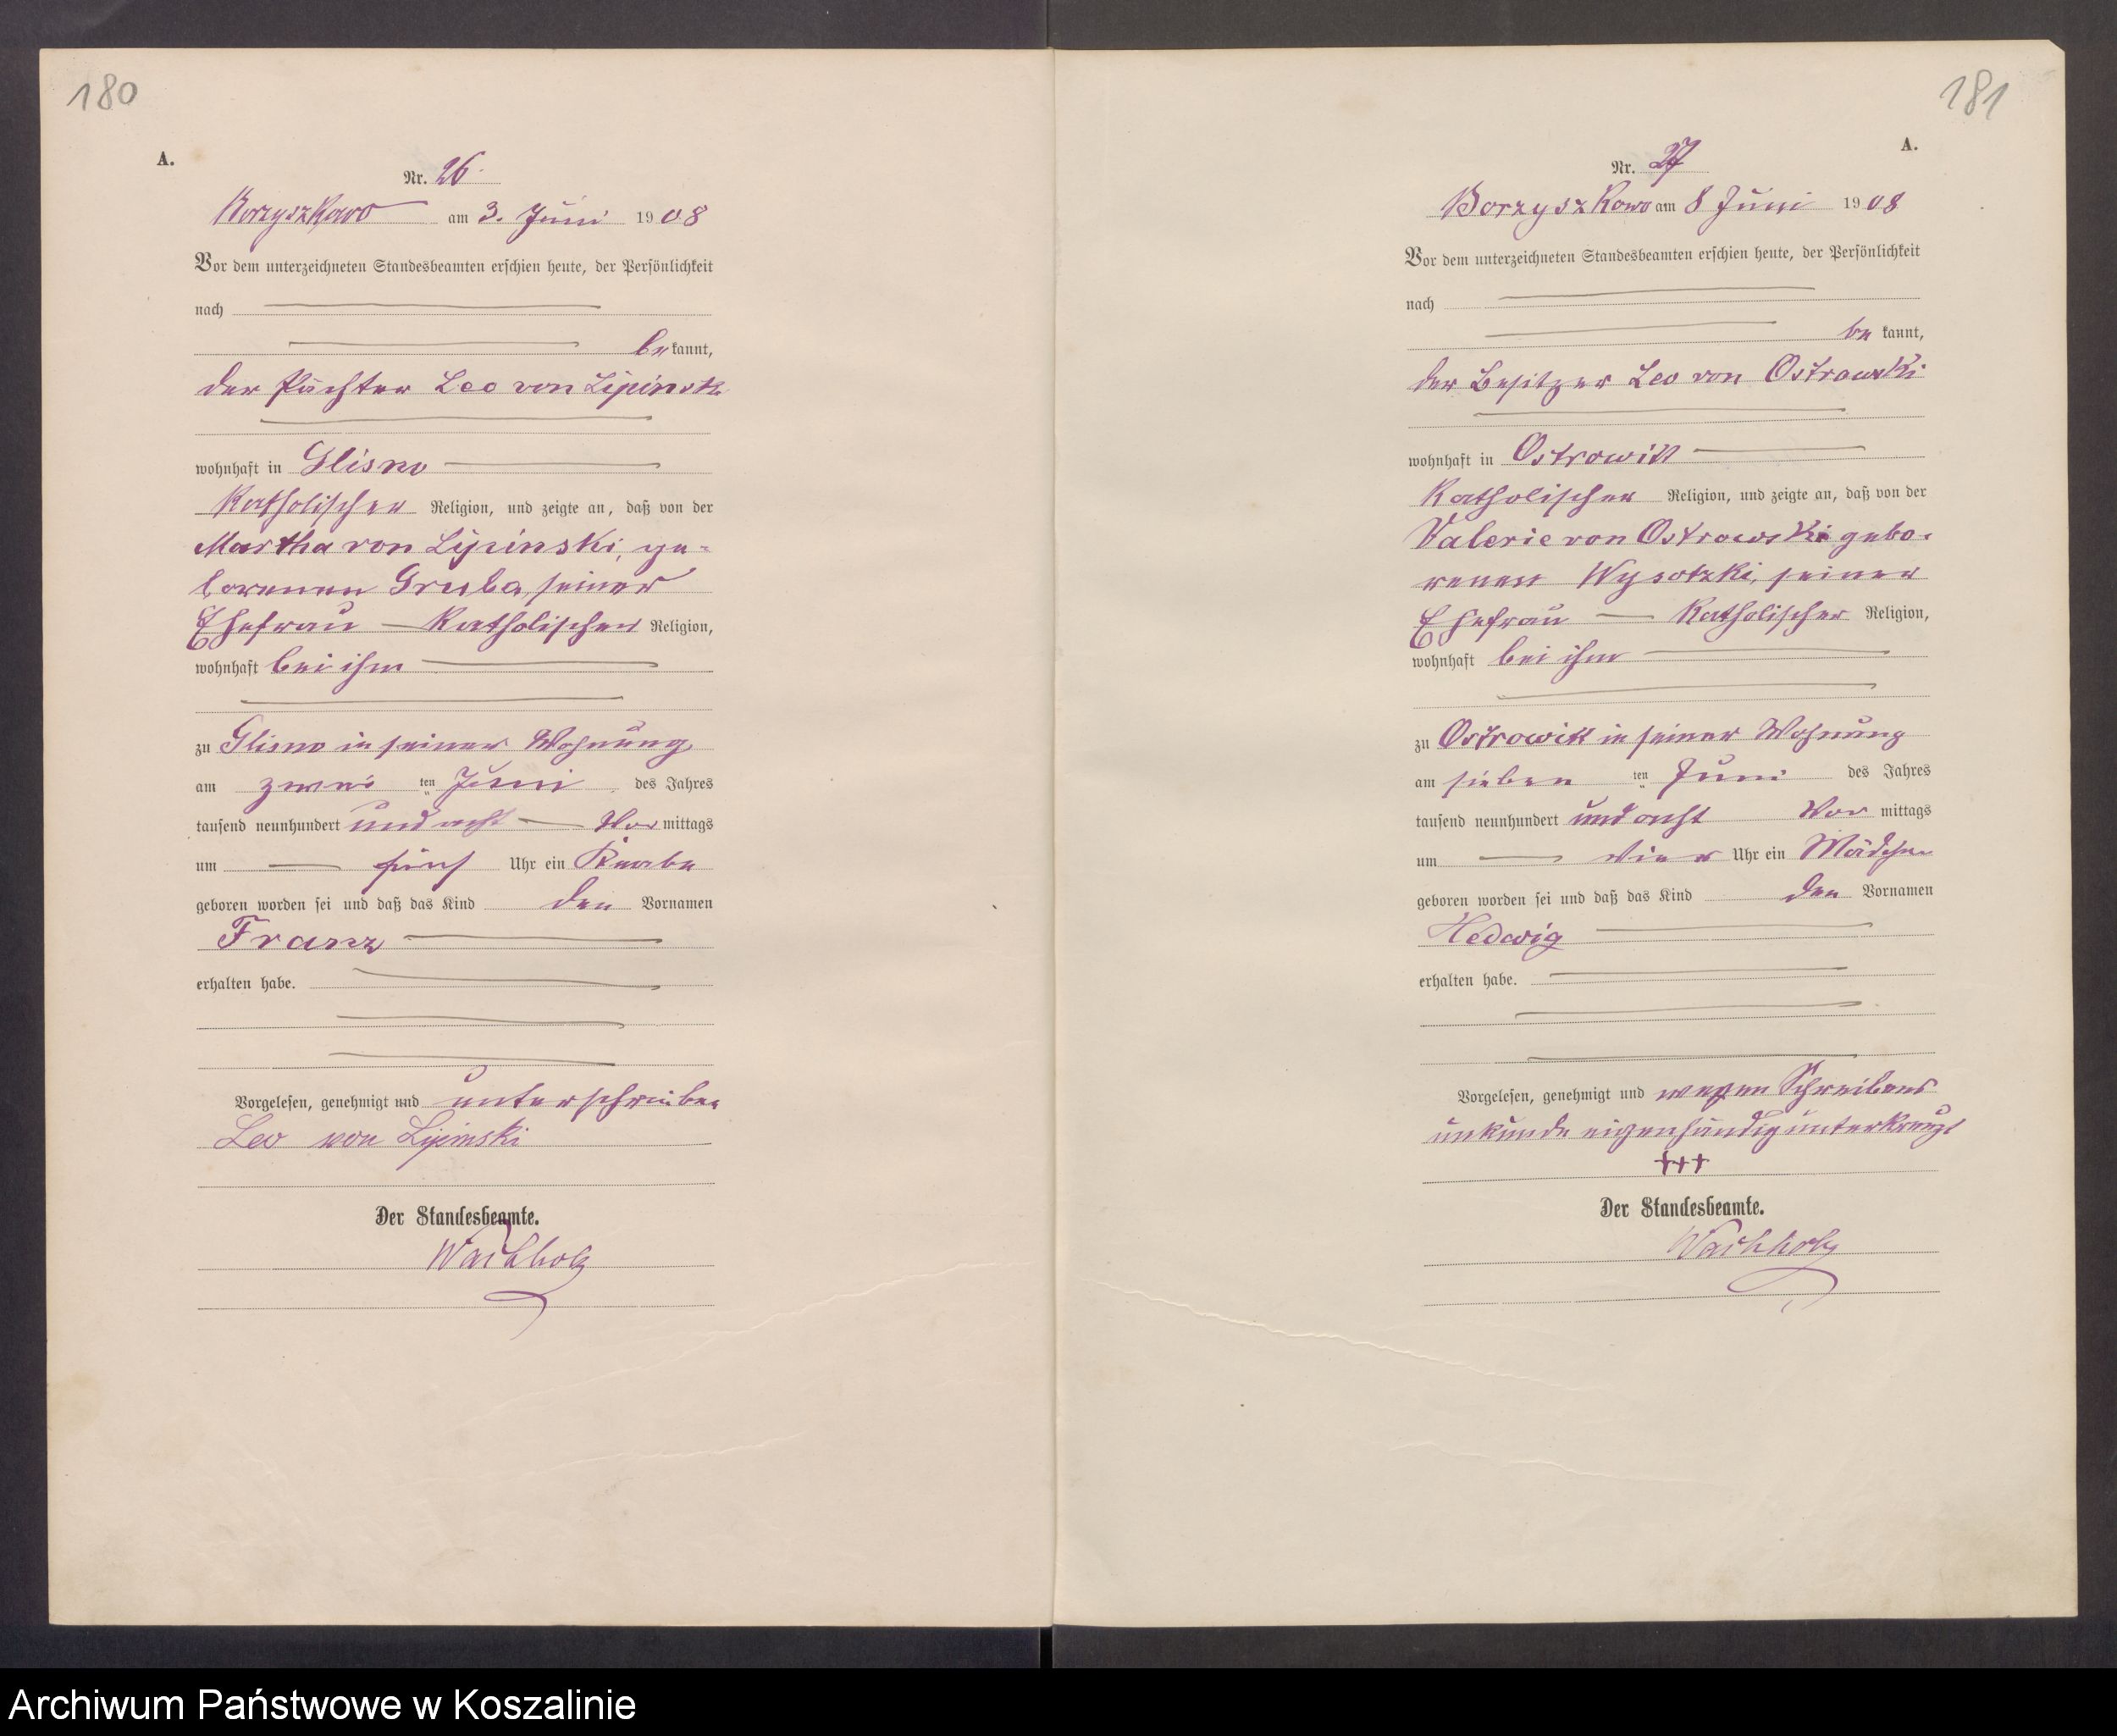 180
A.
Nr. 26.
Borzyszkowo am 3. Juni 1908
Vor dem unterzeichneten Standesbeamten erschien heute, der Persönlichkeit
nach
be kannt,
der Pächter Leo von Lipinski
wohnhaft in Glisno
katholischer Religion, und zeigte an, daß von der
Martha von Lipinski, ge-
borenen Gruba, seiner
Ehefrau katholischer Religion,
wohnhaft bei ihm
zu Glisno in seiner Wohnung
am zwei ten Juni des Jahres
tausend neunhundert und acht Vor mittags
um fünf Uhr ein Knabe
geboren worden sei und daß das Kind den Vornamen
Franz
erhalten habe.
Vorgelesen, genehmigt und unterschrieben
Leo von Lipinski
Der Standesbeamte.
Wachholz
181
A.
Nr. 27
Borzyszkowo am 8 Juni 1908
Vor dem unterzeichneten Standesbeamten erschien heute, der Persönlichkeit
nach
be kannt,
der Besitzer Leo von Ostrowski
wohnhaft in Ostrowitt
katholischer Religion, und zeigte an, daß von der
Valerie von Ostrowski gebo-
renen Wysotzki, seiner
Ehefrau katholischer Religion,
wohnhaft bei ihm
zu Ostrowitt in seiner Wohnung
am sieben ten Juni des Jahres
tausend neunhundert und acht Vor mittags
um vier Uhr ein Mädchen
geboren worden sei und daß das Kind den Vornamen
Hedwig
erhalten habe.
Vorgelesen, genehmigt und wegen Schreibens
unkunde eigenhändig unterkreuzt
+++
Der Standesbeamte.
Wachholz
Archiwum Państwowe w Koszalinie